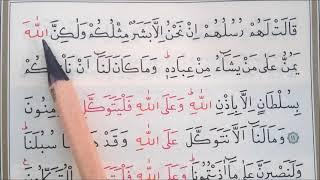 قَالَتْ لَهُمْ رُسُلُهُمْ إِنْ نَحْنُ إِلَّا بَشَرٌ مِثْلُكُمْ وَلٰكِنَّ اللّٰهَ
يَمُنُّ عَلٰى مَنْ يَشَاءُ مِنْ عِبَادِهِ وَمَا كَانَ لَنَا أَنْ
بِسُلْطَانٍ إِلَّا بِإِذْنِ اللّٰهِ وَعَلَى اللّٰهِ فَلْيَتَوَكَّلِ
وَمَا لَنَا أَلَّا نَتَوَكَّلَ عَلَى اللّٰهِ وَقَدْ سُبُلَنَا
وَلَنَصْبِرَنَّ عَلٰى مَا اٰذَيْتُمُونَا وَعَلَى اللّٰهِ